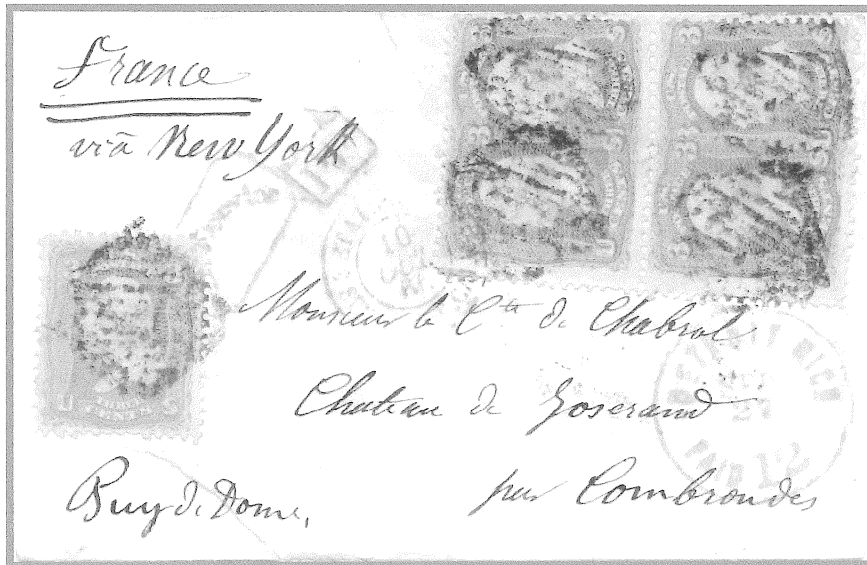 France
viā New York
Monsieur le Cte de Chabrol
Chateau de Joserand
par Combrondes
Puy de Dome,
DETROIT MICH
PAID 12